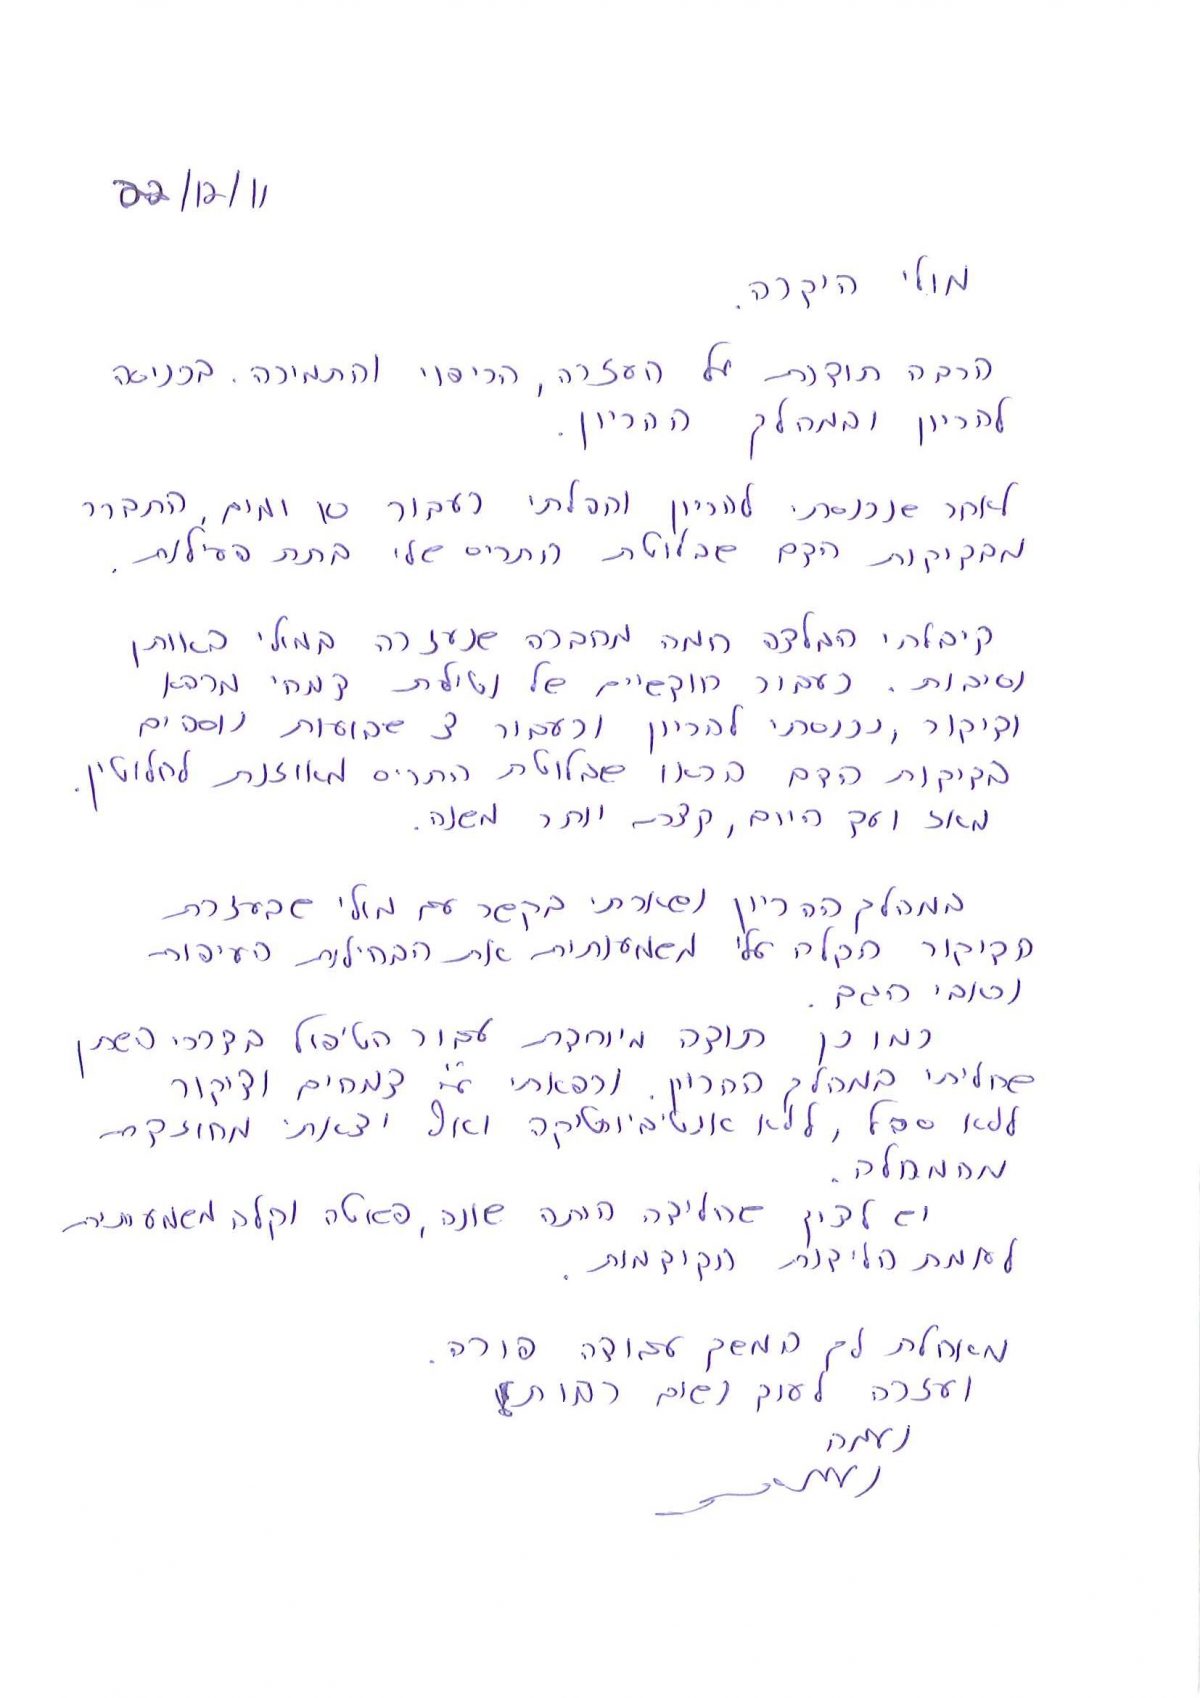 22/12/11
מולי היקרה.
הרבה תודות על העזרה, הריפוי והתמיכה. בכניסה
להריון ובמהלך ההריון.
לאחר שנכנסתי להריון והפלתי כעבור ומים, התברר
מבדיקות הדם שבלוטת התריס שלי בתת פעילות.
קיבלתי המלצה חמה מחברה שנעזרה במולי באותן
נסיבות. כעבור חודשיים של נטילת צמחי מרפא
ודיקור, נכנסתי להריון וכעבור 3 שבועות נוספים
בדיקות הדם הראו שבלוטת התריס מאוזנת לחלוטין.
מאז ועד היום, קצת יותר משנה.
במהלך ההריון נשארתי בקשר עם מולי שבעזרת
הדיקור הקלה עלי משמעותית את הבחילות העייפות
וכאבי הגב.
כמו כן תודה מיוחדת עבור הטיפול בדרכי השתן
שחליתי במהלך ההריון. ורפאתי ע"י צמחים ודיקור
ללא סבל, ללא אנטיביוטיקה ואף יצאתי מחוזקת
מהמחלה.
יש לציין שהלידה היתה שונה, פשוטה וקלה משמעותית
לעומת הלידות הקודמות.
מאחלת לך המשך עבודה פורה.
ועזרה לעוד נשים רבות
נעמה